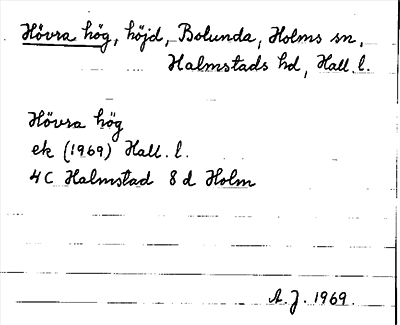 Hövra hög, höjd, Bolunda, Holms sn,
Halmstads hd, Hall. l.
Hövra hög
ek (1969) Hall. l.
4C Halmstad 8 d Holm
A.J. 1969.